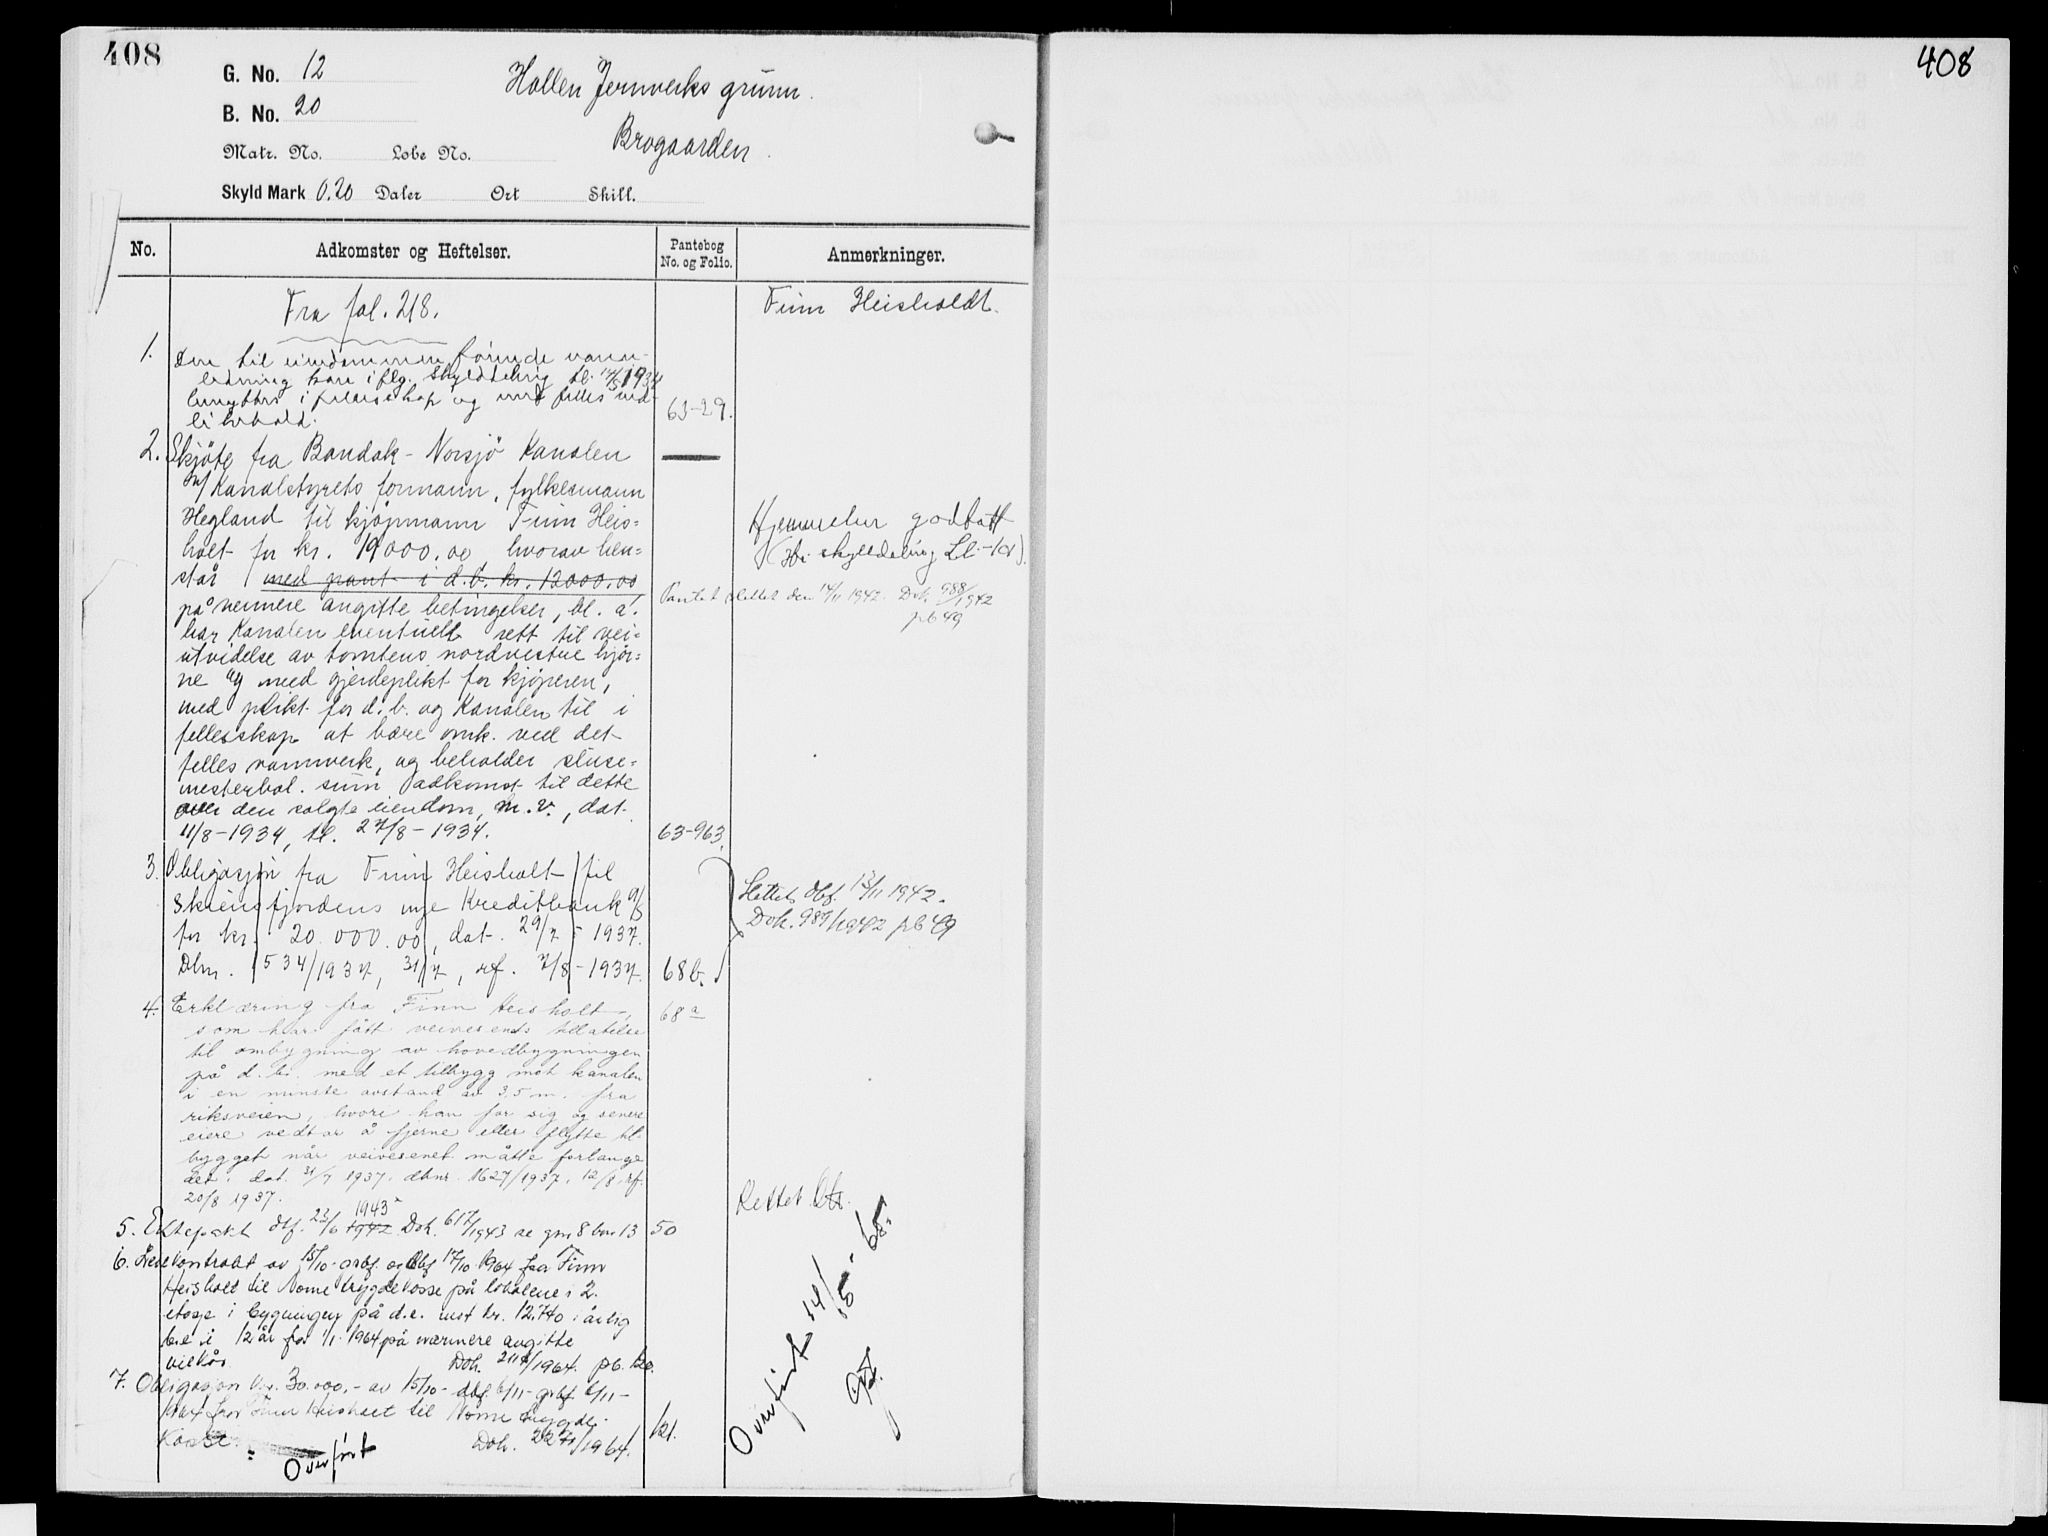 408
408
G. No. 12
Hollen Jernverks grunn.
B. No. 20
Brogaarden.
Matr. No. Løbe No.
Skyld Mark 0.20 Daler Ort Skill.
No. Adkomster og Heftelser. Pantebog No. og Folio. Anmerkninger.
Fra fol. 218.
Finn Heisholdt.
1. Den til eiendommen førende vann-
ledning kan iflg. skylddeling tl. 1934
benyttes i fellesskap og med felles ved-
likehold. 63-29.
2. Skjøte fra Bandak-Norsjø Kanalen
v/ Kanalstyrets formann, fylkesmann
Hegland til kjøpmann Finn Heis=
holt for kr. 19000.00, hvorav hen=
står med pant i d.b. kr. 12000.00
på nermere angitte betingelser, bl. a.
har Kanalen eventuelt rett til vei=
utvidelse av tomtens nordvestre hjør=
ne og med gjerdeplikt for kjøperen,
med plikt for d.b. og Kanalen til i
fellesskap at bære omk. ved det
felles vannverk, og beholder sluse=
mesterbol. sum adkomst til dette
over den solgte eiendom, m.v., dat.
11/8-1934, tl. 27/8-1934. 63-963.
Hjemmelen godtatt
(se skylddeling Ll.-)
Pantet slettet den 14/11 1942. Dok. 988/1942
pb 49
3. Obligasjon fra Finn Heisholt til
Skiensfjordens nye Kreditbank a/s
for kr. 20.000.00, dat. 29/7-1937.
Dbn. 1534/1937, 31/7, rf. 7/8-1937. 68b.
Slettet dbf. 13/11 1942.
Dok. 989/1942 pb 49
4. Erklæring fra Finn Heisholt, 68a
som har fått veivesenets tillatelse
til ombygning av hovedbygningen
på d.b. med et tilbygg mot kanalen
i en minste avstand av 3,5 m. fra
riksveien, hvori han for sig og senere
eiere vedtar å fjerne eller flytte til-
bygget når veivesenet måtte forlange
det. dat. 31/7 1937. dbnr. 1627/1937. 12/8. rf.
20/8 1937.
Rettet
5. Ektepakt dbf. 23/6 1942 1943 Dok. 617/1943 se gnr 8 bnr 13 50
6. Leiekontrakt av 15/10- og dbf 17/10 1964 fra Finn
Heisholt til Nome trygdekasse på lokalene i 2.
etasje i bygningen på d.e. mot kr. 12.740 i årlig
leie i 12 år fra 1/1 1964 på nærmere angitte
vilkår Dok. /1964. pb.
7. Obligasjon kr. 30.000.- av 15/10- dbf. 6/11- grbf 6/11-
1964 fra Finn Heisholt til Nome trygde-
kasse. Dok. 2271/1964. 121.
Overført
Overført 14/5-65.